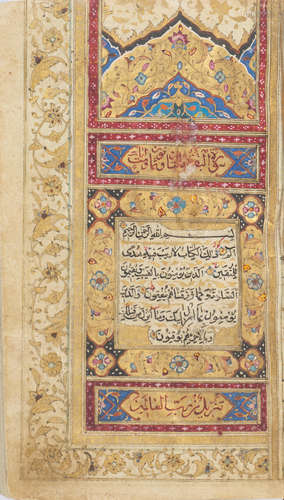 سورة البقرة
بسم الله الرحمن الرحيم
الم ذلك الكتاب لا ريب فيه هدى
للمتقين الذين يؤمنون بالغيب ويقيمون
الصلوة ومما رزقناهم ينفقون والذين
يؤمنون بما انزل اليك وما انزل من قبلك
وبالاخرة هم يوقنون
تنزيل من رب العالمين